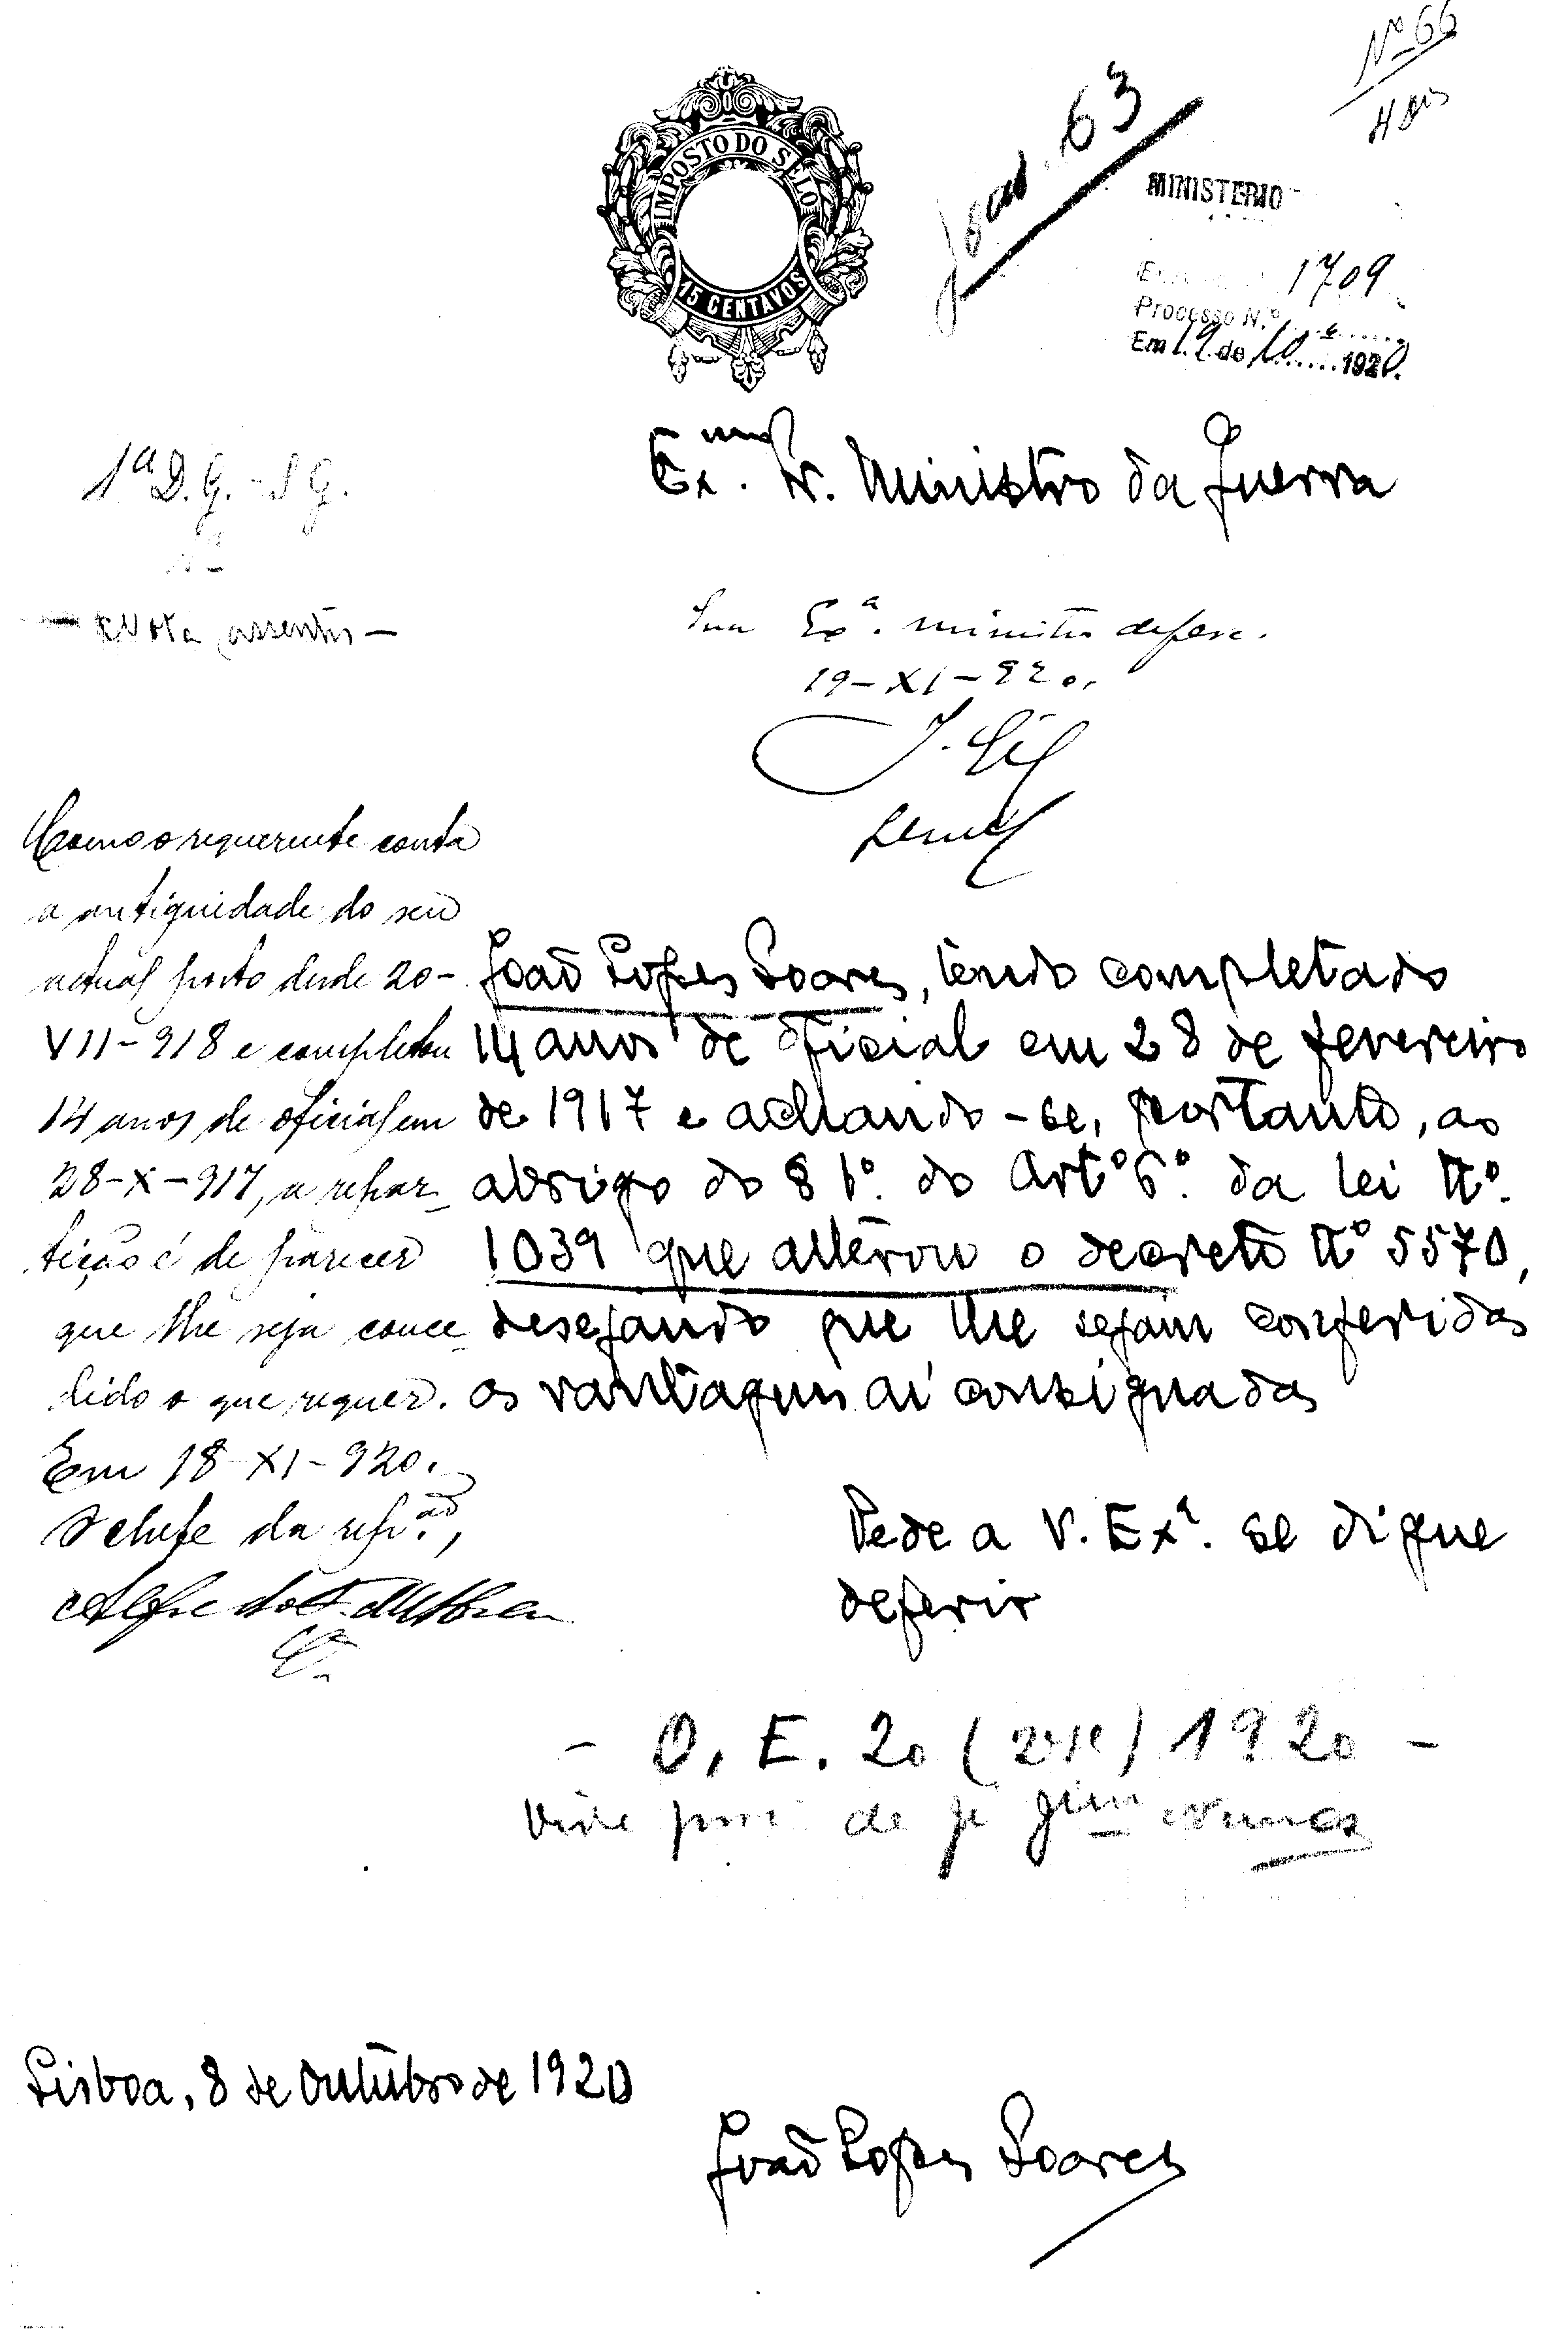 Nº 66
IMPOSTO DO SELO
15 CENTAVOS
63
MINISTERIO
1709
Processo N.º
Em 19 de 10 1920.
Exmo. Sr. Ministro da Guerra
1ª D.G.
Nota assentos
Sua Exª. ministro defere.
19-XI-920.
J. Gil
Como o requerente conta
a antiguidade do seu
actual posto desde 20-
VII-918 e completou
14 anos de oficial em
28-X-917, a repar-
tição é de parecer
que lhe seja conce-
dido o que requer.
Em 18-XI-920.
O chefe da repão.,
João Lopes Soares, tendo completado
14 anos de oficial em 28 de fevereiro
de 1917 e achando-se, portanto, ao
abrigo do § 1º. do Artº 6º. da lei Nº.
1039 que alterou o decreto Nº 5570,
desejando que lhe sejam conferidas
as vantagens aí consignadas
Pede a V. Exª. se digne
deferir
- O. E. 20 (2ª S) 1920 -
Vide de Nunes
Lisboa, 8 de Outubro de 1920
João Lopes Soares